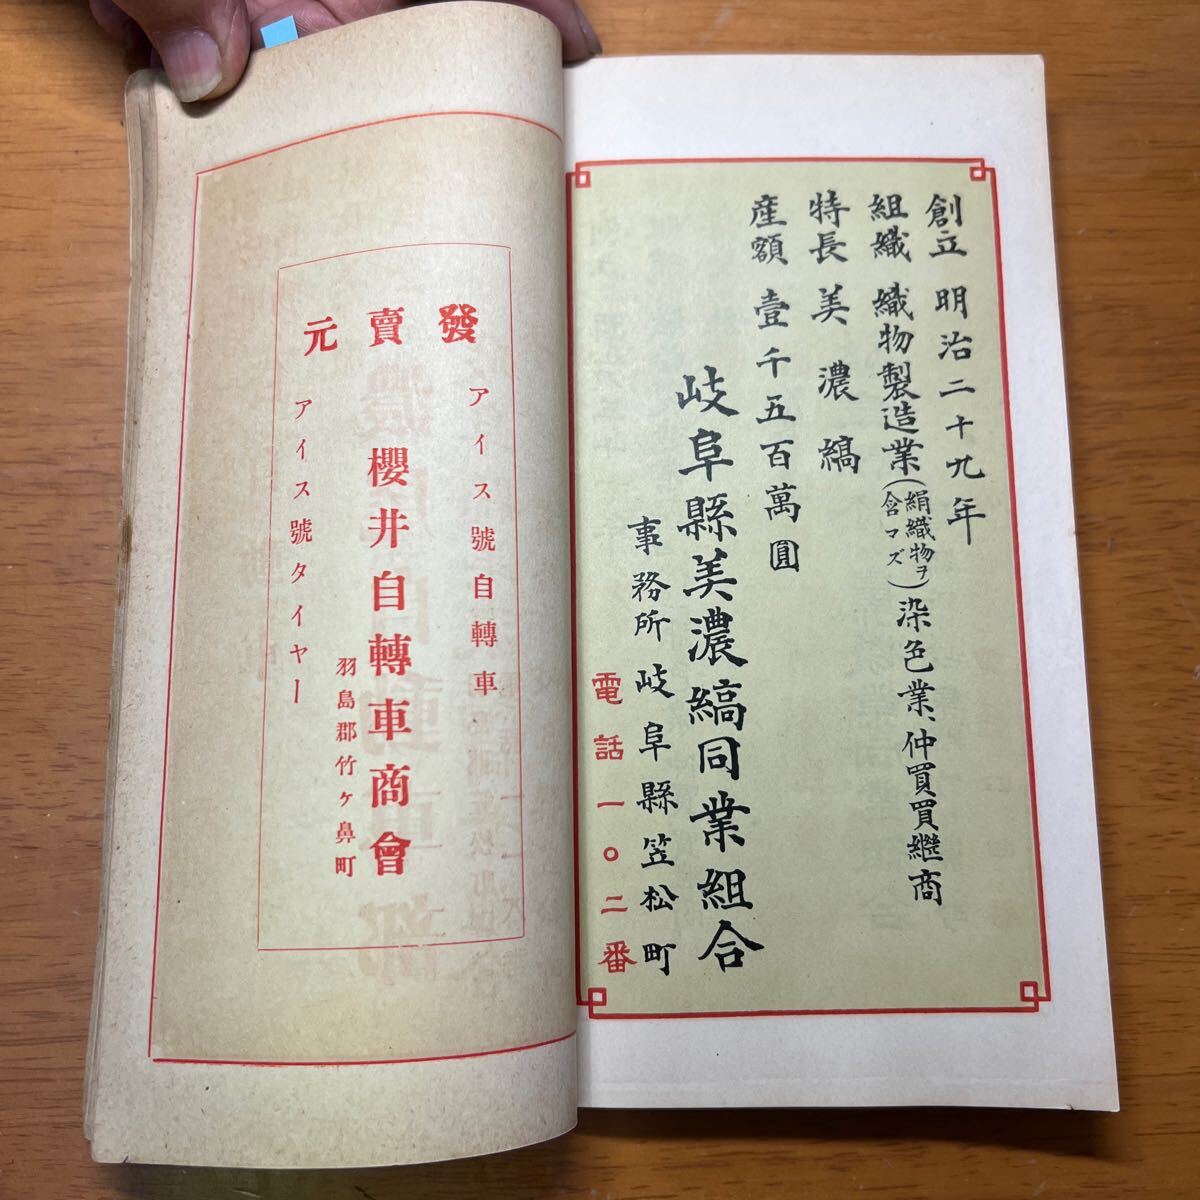 創立 明治二十九年
組織 織物製造業(絹織物ヲ含マズ)染色業、仲買買継商
特長 美濃縞
産額 壹千五百萬圓
岐阜縣美濃縞同業組合
事務所岐阜縣笠松町
電話一〇二番
發賣元
アイス號自轉車
櫻井自轉車商會
羽島郡竹ヶ鼻町
アイス號タイヤー